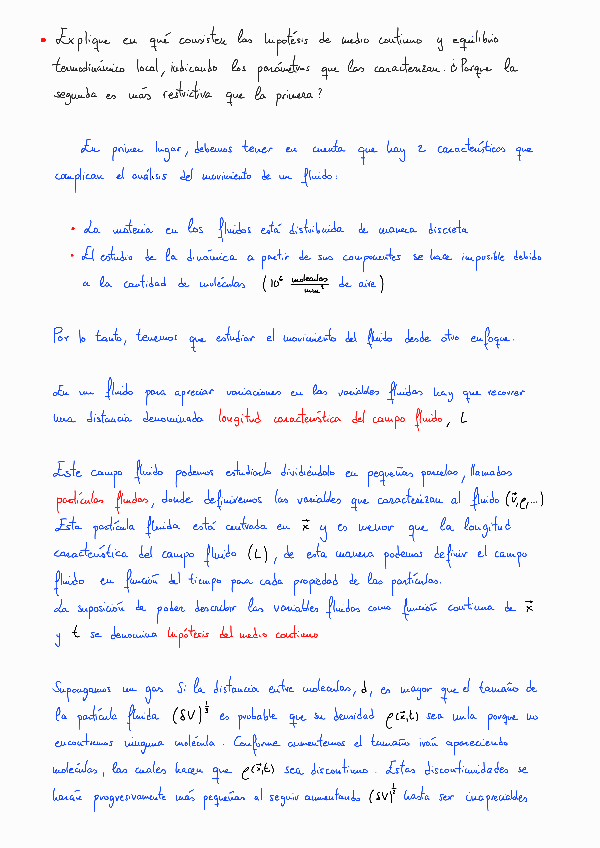 • Explique en qué consisten las hipotésis de medio continuo y equilibrio
termodinámico local, indicando los parámetros que las caracterizan. ¿Porque la
segunda es más restrictiva que la primera?
En primer lugar, debemos tener en cuenta que hay 2 características que
complican el análisis del movimiento de un fluido:
• La materia en los fluidos está distribuida de manera discreta
• El estudio de la dinámica a partir de sus componentes se hace imposible debido
a la cantidad de moléculas (10⁶ moléculas/mm³ de aire)
Por lo tanto, tenemos que estudiar el movimiento del fluido desde otro enfoque.
En un fluido para apreciar variaciones en las variables fluidas hay que recorrer
una distancia denominada longitud característica del campo fluido, L
Este campo fluido podemos estudiarlo dividiéndolo en pequeñas parcelas, llamadas
partículas fluidas, donde definiremos las variables que caracterizan al fluido (v⃗,ρ,...)
Esta partícula fluida está centrada en x⃗ y es menor que la longitud
característica del campo fluido (L), de esta manera podemos definir el campo
fluido en función del tiempo para cada propiedad de las partículas.
La suposición de poder describir las variables fluidas como función continua de x⃗
y t se denomina hipótesis del medio continuo
Supongamos un gas Si la distancia entre moléculas, d, es mayor que el tamaño de
la partícula fluida (δV)^1/3 es probable que su densidad ρ(x⃗,t) sea nula porque no
encontremos ninguna molécula. Conforme aumentemos el tamaño irán apareciendo
moléculas, las cuales hacen que ρ(x⃗,t) sea discontinuo. Estas discontinuidades se
harán progresivamente más pequeñas al seguir aumentando (δV)^1/3 hasta ser inapreciables